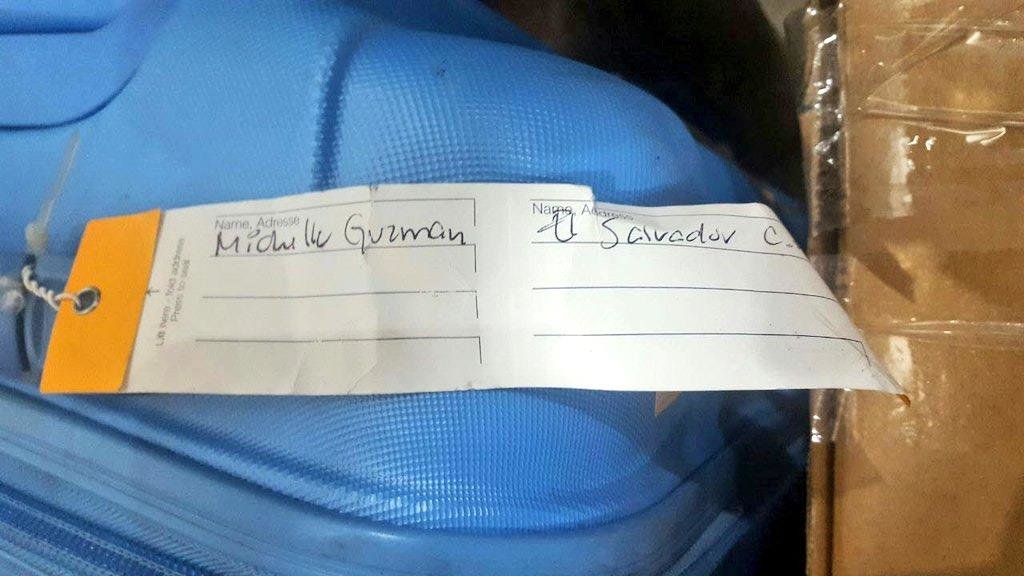 Name, Adresse
Michelle Guzman
Name, Address
El Salvador C.
Lift here - fold address
Press to seal